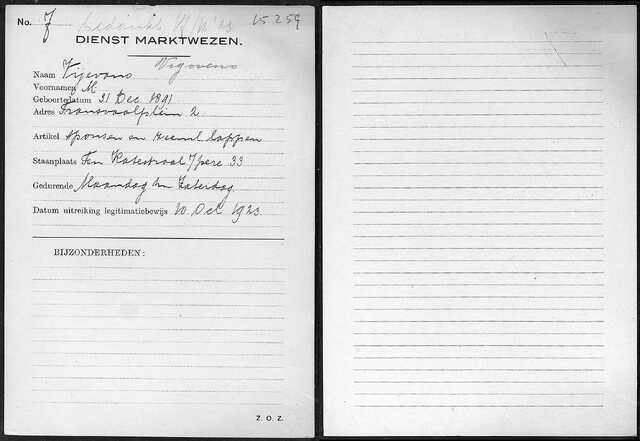 No. 7 bedankt 25259
DIENST MARKTWEZEN.
Vigeveno
Naam Vijevano
Voornamen M.
Geboortedatum 31 Dec. 1891
Adres Transvaalplein 2
Artikel sponsen en zeemlappen
Staanplaats Ten Katestraat 33
Gedurende Maandag t/m Zaterdag
Datum uitreiking legitimatiebewijs 10 Oct 1923
BIJZONDERHEDEN:
Z. O. Z.